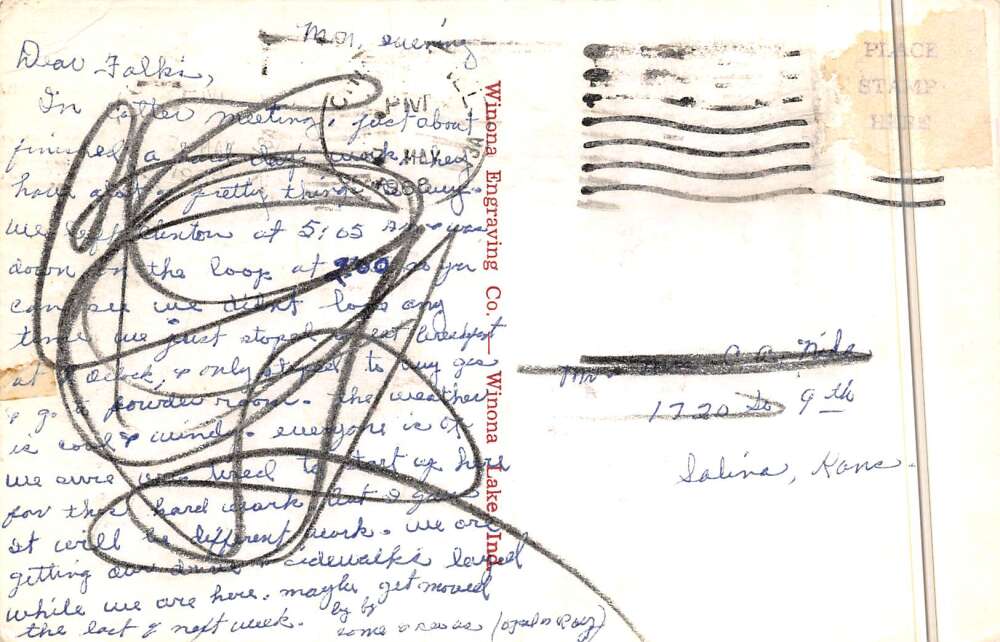 Mon, evening
Dear Folks,
In letter meeting, just about
finished a hard day's work, they
have a lot of pretty things to buy.
we left Denton at 5:05 & was
down on the loop at 900 so you
can see we didnt loos any
time we just stoped to eat breakfast
at oclock, & only stoped to buy gas
& go to powder room. the weather
is cool & wind. everyone is ok
we sure was tired to start up here
for this hard work but I guess
it will be different work. we are
getting our drive & sidewalks layed
while we are here. maybe get moved
the last of next week.
by by
PM
MAY
Winona Engraving Co. — Winona Lake, Ind.
PLACE
STAMP
HERE
Mr
1720 So 9th
Salina, Kans.